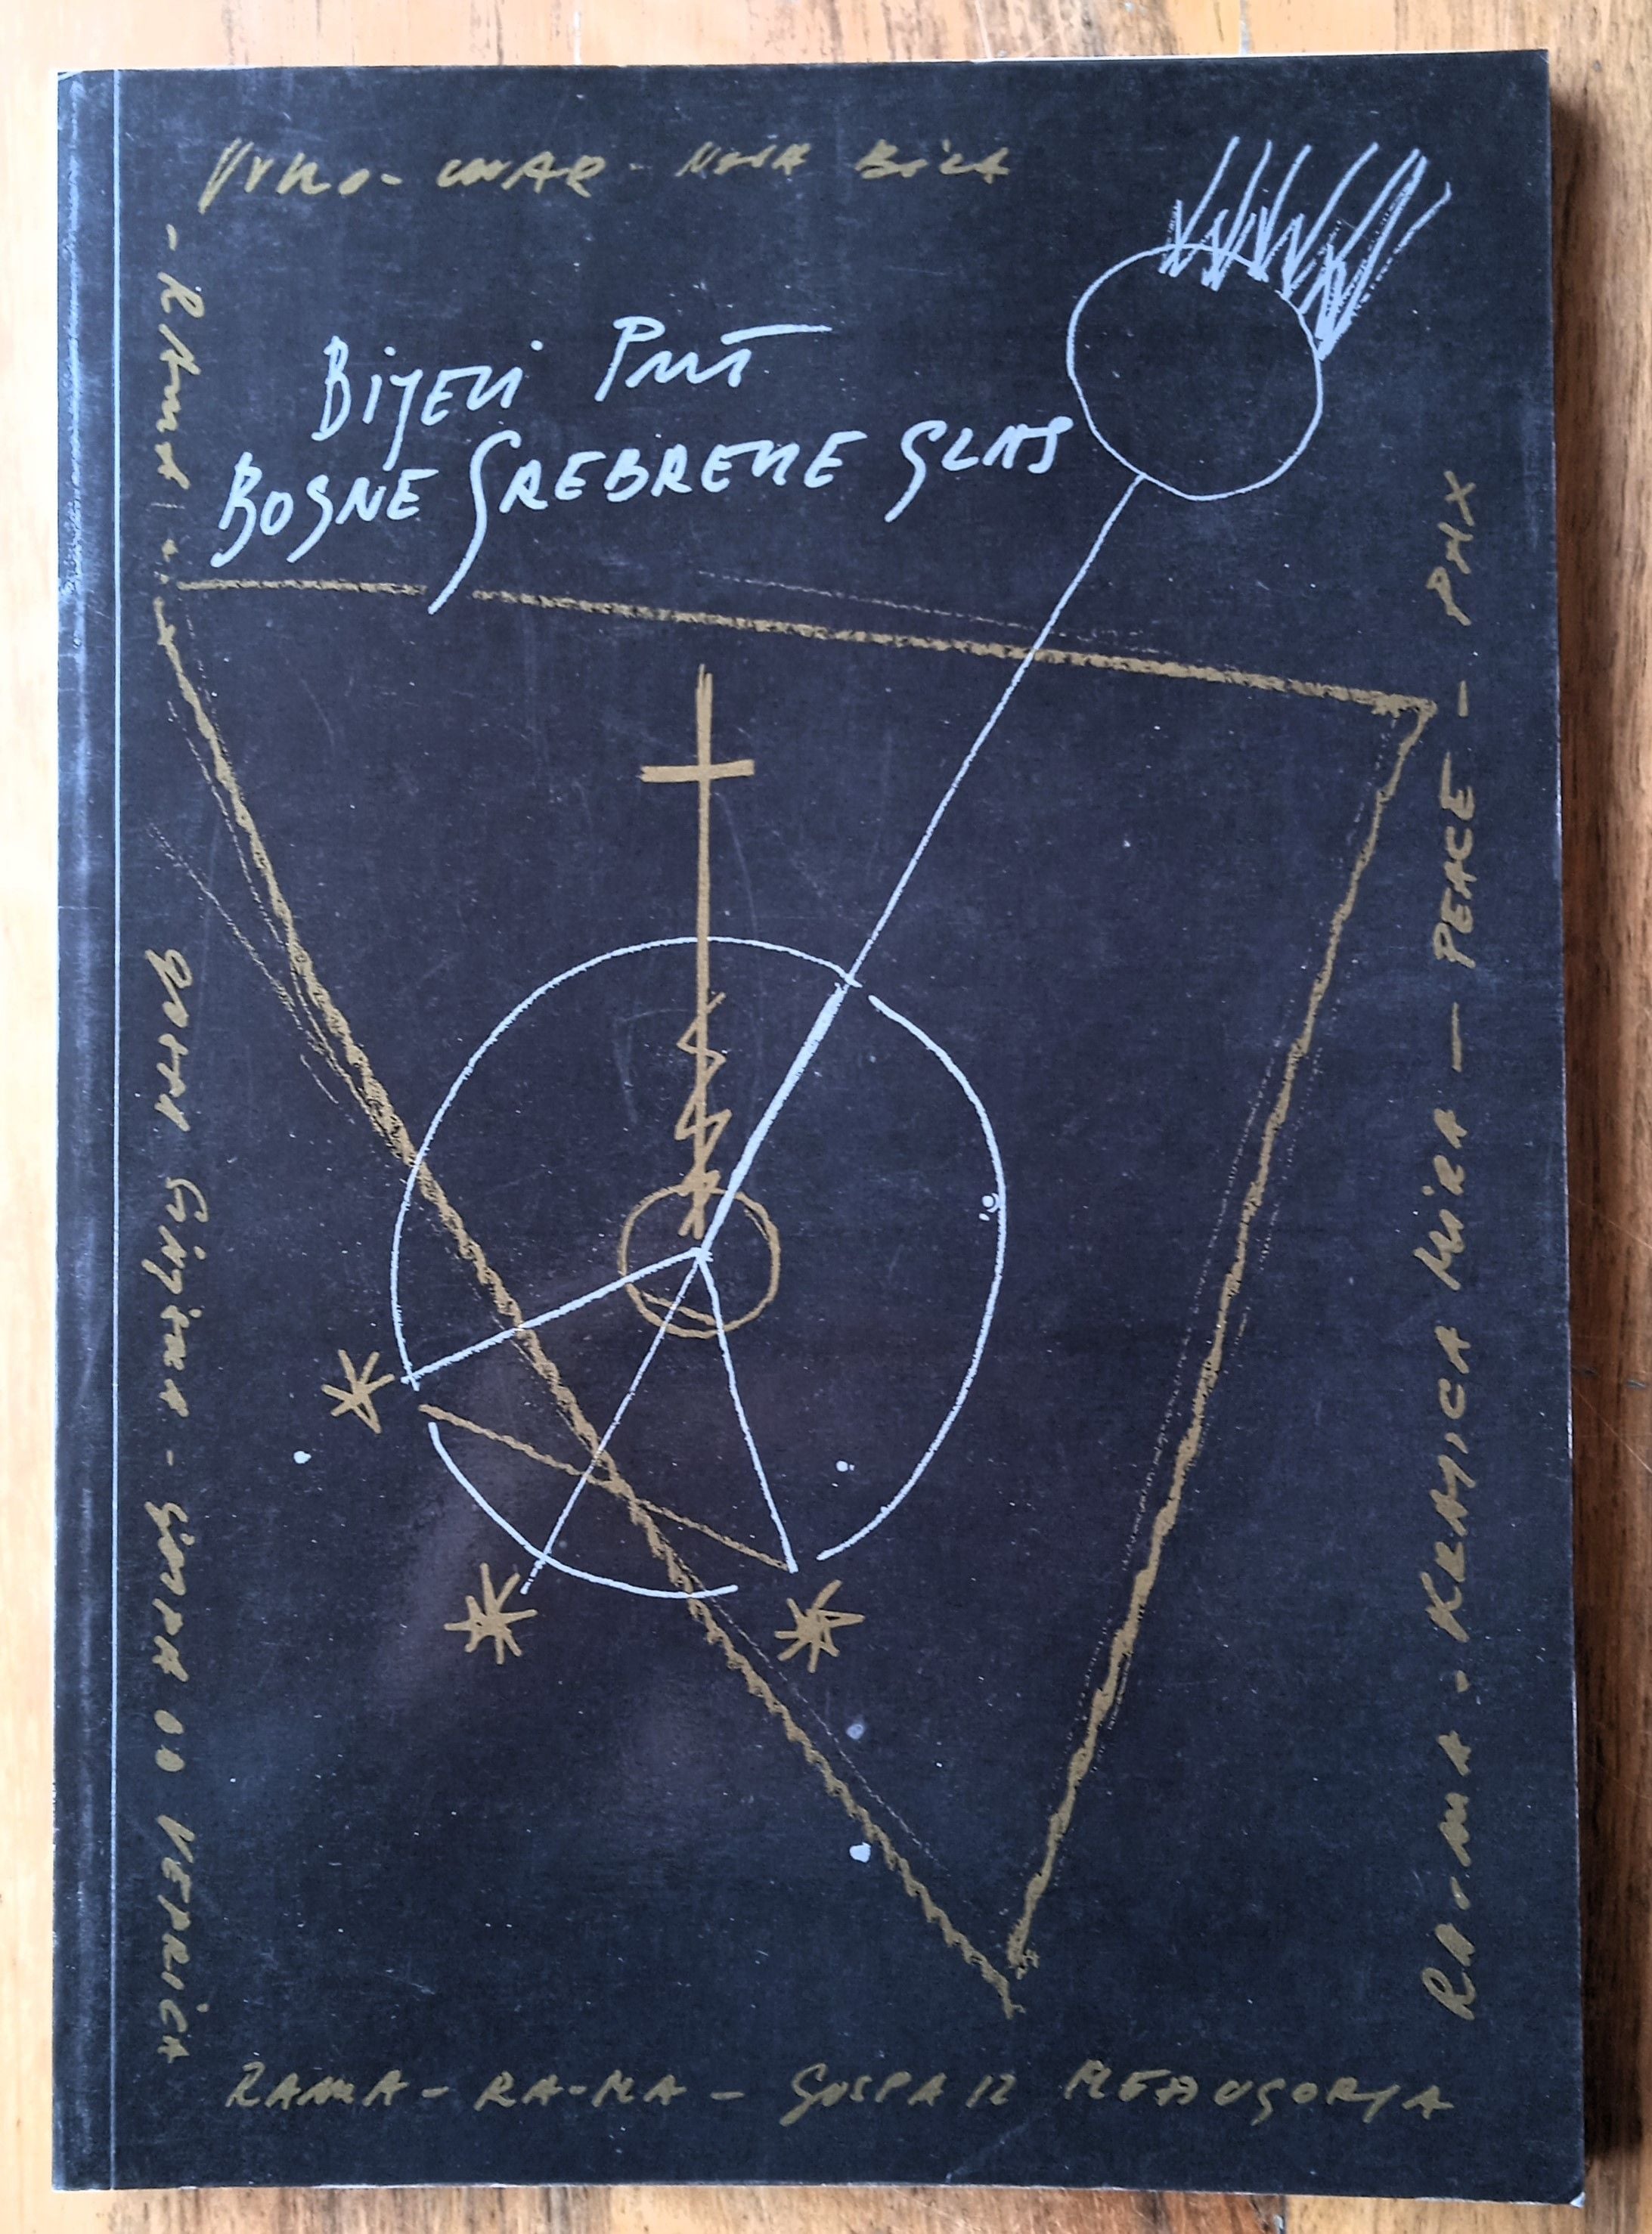 VUKO-WAR - NOVA BILA
BIJELI PUT
BOSNE SREBRENE GLAS
- RAMA
GOSPA SINJSKA - GOSPA OD VEPRICA
RA-MA - KRALJICA MIRA - PEACE - PAX
RAMA - RA-MA - GOSPA IZ MEĐUGORJA